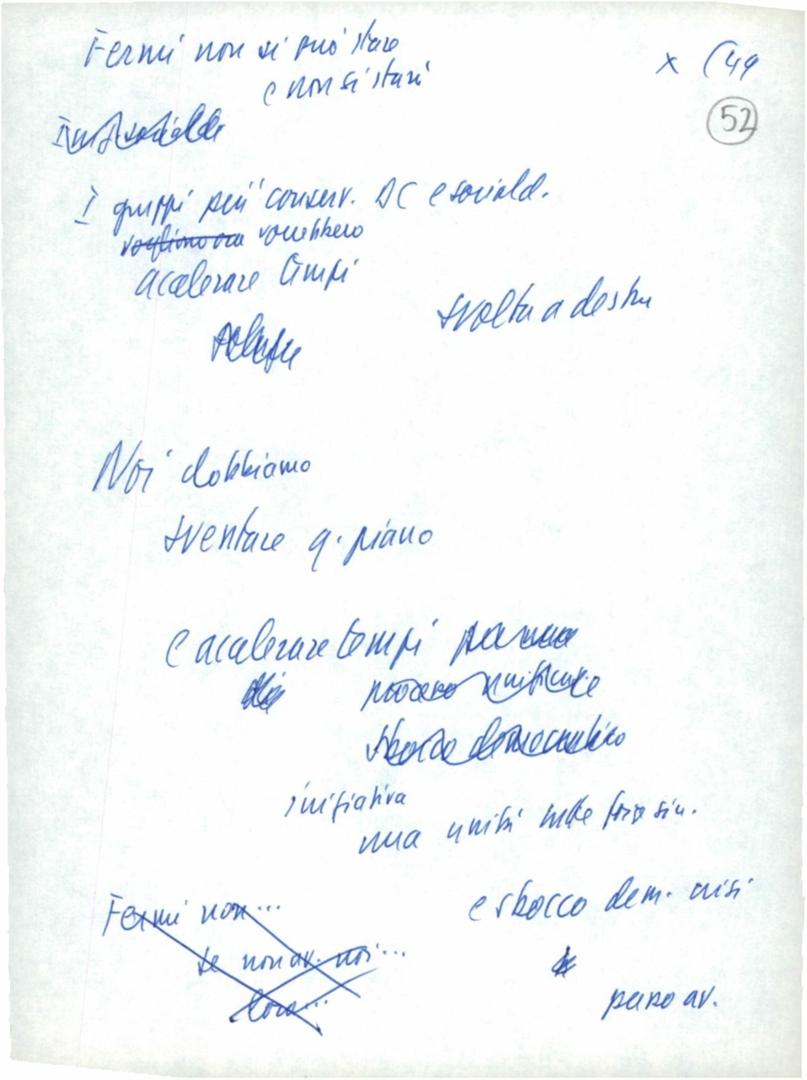 Fermi non si può stare
e non si starà
x (49
52
I gruppi più conserv. DC e sociald.
vogliono ora vorrebbero
accelerare tempi
svolta a destra
Noi dobbiamo
sventare q. piano
e accelerare tempi
processo unificante
sbocco democratico
iniziativa
una unità tutte forze sin.
e sbocco dem. crisi
Fermi non...
se non av. noi...
loro...
passo av.